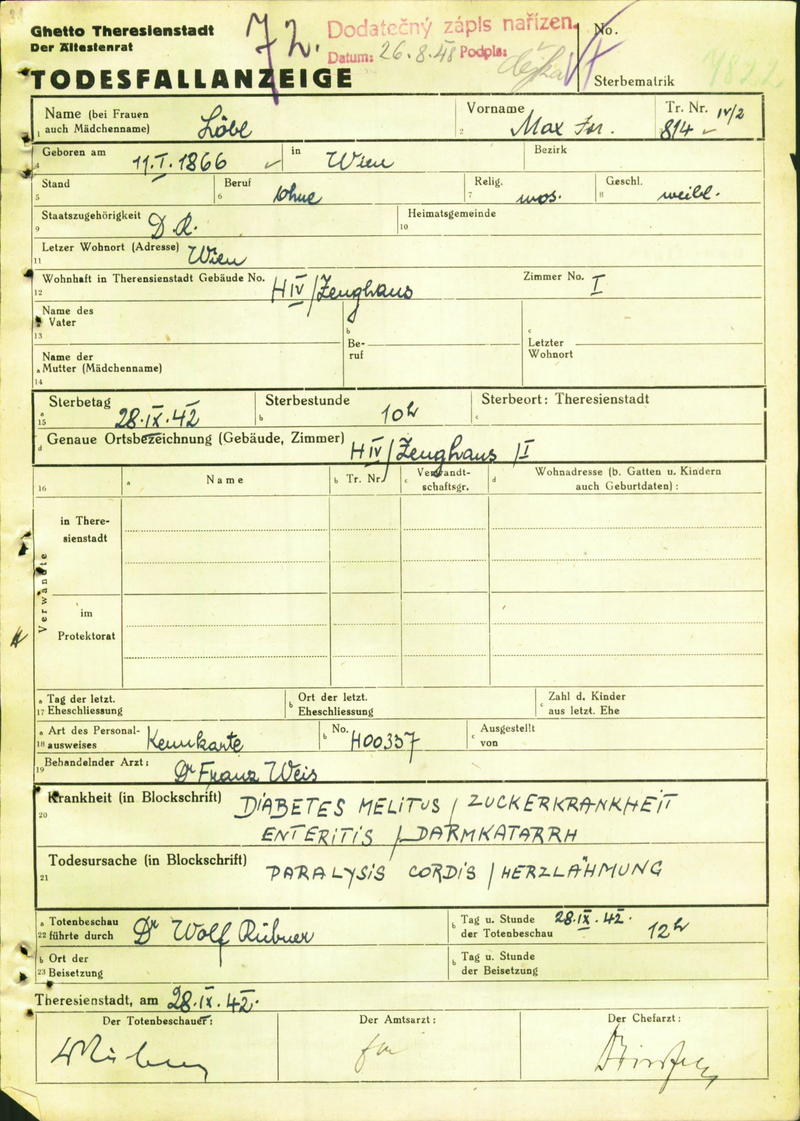 Ghetto Theresienstadt
Der Ältestenrat
72.
Dodatečný zápis nařízen.
Datum: 26.8.48 Podpis:
No.
TODESFALLANZEIGE
Sterbematrik
Name (bei Frauen auch Mädchenname) Löbl
Vorname Max Isr.
Tr. Nr. IV/2 814
1 2
Geboren am 11.I.1866 in Wien Bezirk
4
Stand Beruf ohne Relig. mos. Geschl. weibl.
5 6 7 8
Staatszugehörigkeit D.R. Heimatsgemeinde
9 10
Letzer Wohnort (Adresse) Wien
11
Wohnhaft in Theresienstadt Gebäude No. H IV/Zeughaus Zimmer No. I
12
Name des Vater
13
b Beruf
c Letzter Wohnort
Name der
a Mutter (Mädchenname)
14
Sterbetag 28.IX.42 Sterbestunde 10h Sterbeort: Theresienstadt
a 15 b c
d Genaue Ortsbezeichnung (Gebäude, Zimmer) H IV/Zeughaus /I
16 a Name b Tr. Nr. c Verwandtschaftsgr. d Wohnadresse (b. Gatten u. Kindern auch Geburtdaten):
Verwandte
in Theresienstadt
im Protektorat
a Tag der letzt. b Ort der letzt. c Zahl d. Kinder
17 Eheschliessung Eheschliessung aus letzt. Ehe
a Art des Personal- Kennkarte b No. H00337 c Ausgestellt
18 ausweises von
Behandelnder Arzt: Dr Franz Weis
19
Krankheit (in Blockschrift) DIABETES MELITUS / ZUCKERKRANKHEIT
20 ENTERITIS / DARMKATARRH
Todesursache (in Blockschrift) PARALYSIS CORDIS / HERZLÄHMUNG
21
a Totenbeschau Dr Wolf Rübner b Tag u. Stunde 28.IX.42.
22 führte durch der Totenbeschau 12h
b Ort der b Tag u. Stunde
23 Beisetzung der Beisetzung
Theresienstadt, am 28.IX.42.
Der Totenbeschauer: Der Amtsarzt: Der Chefarzt: